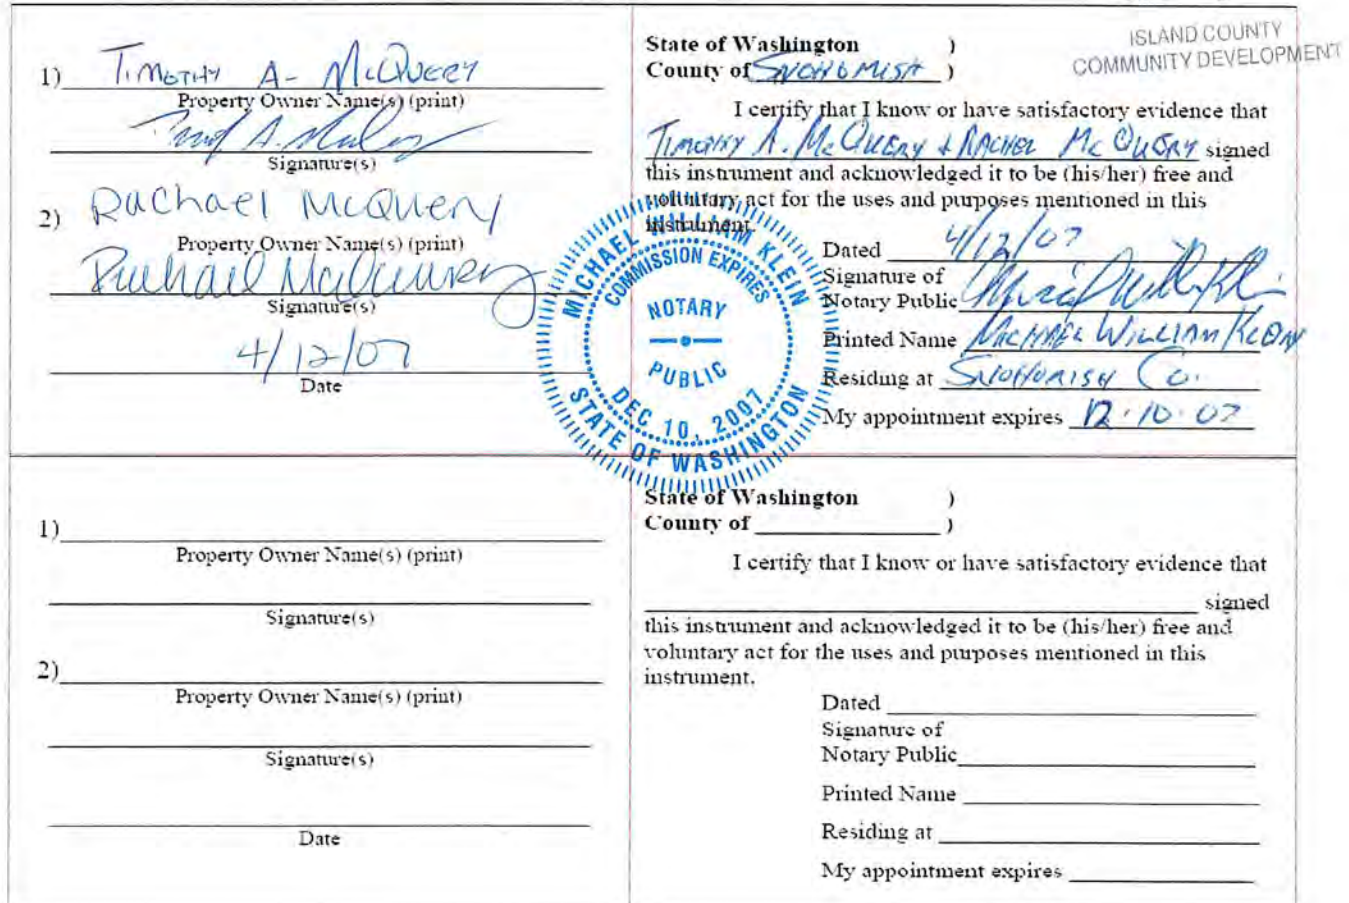 ISLAND COUNTY
COMMUNITY DEVELOPMENT
1) TIMOTHY A- McQUERY
Property Owner Name(s) (print)
Signature(s)
2) Rachael McQuery
Property Owner Name(s) (print)
Rachael McQuery
Signature(s)
4/12/07
Date
State of Washington )
County of SNOHOMISH )
I certify that I know or have satisfactory evidence that
TIMOTHY A. McQUERY + RACHEL McQUERY signed
this instrument and acknowledged it to be (his/her) free and
voluntary act for the uses and purposes mentioned in this
instrument.
Dated 4/12/07
Signature of
Notary Public
Printed Name MICHAEL WILLIAM KLEIN
Residing at SNOHOMISH Co.
My appointment expires 12.10.07
MICHAEL WILLIAM KLEIN
COMMISSION EXPIRES
NOTARY
PUBLIC
DEC. 10, 2007
STATE OF WASHINGTON
1)
Property Owner Name(s) (print)
Signature(s)
2)
Property Owner Name(s) (print)
Signature(s)
Date
State of Washington )
County of )
I certify that I know or have satisfactory evidence that
signed
this instrument and acknowledged it to be (his/her) free and
voluntary act for the uses and purposes mentioned in this
instrument.
Dated
Signature of
Notary Public
Printed Name
Residing at
My appointment expires